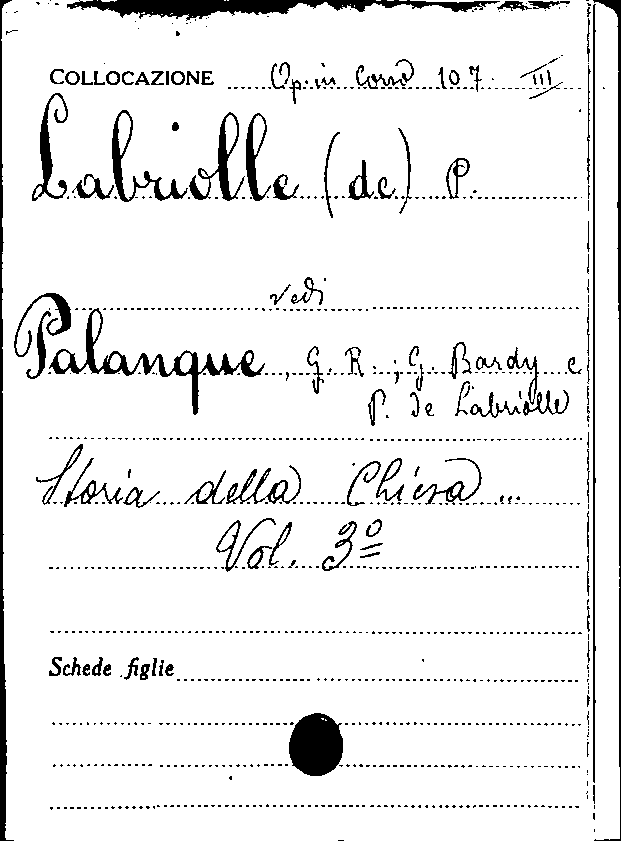 COLLOCAZIONE Op. in Corso 107. III
Labriolle (de) P.
vedi
Palanque, G. R.; G. Bardy e
P. de Labriolle
Storia della Chiesa ...
Vol. 3º
Schede figlie